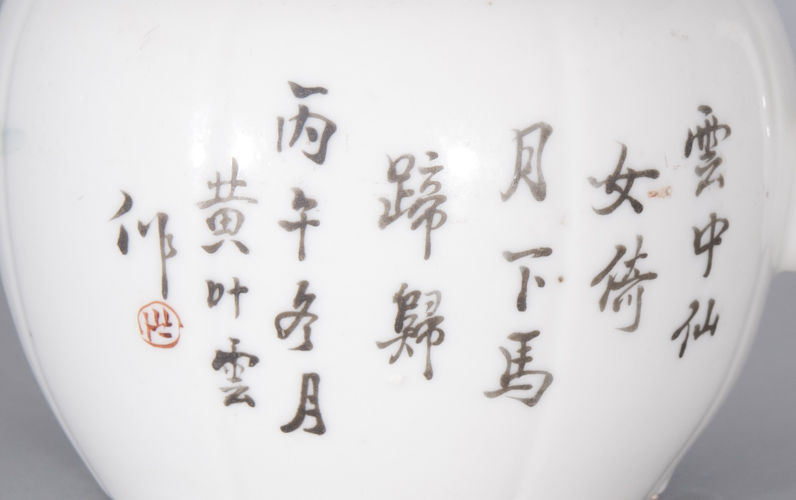 雲中仙
女倚
月下馬
蹄歸
丙午冬月
黄叶雲
作